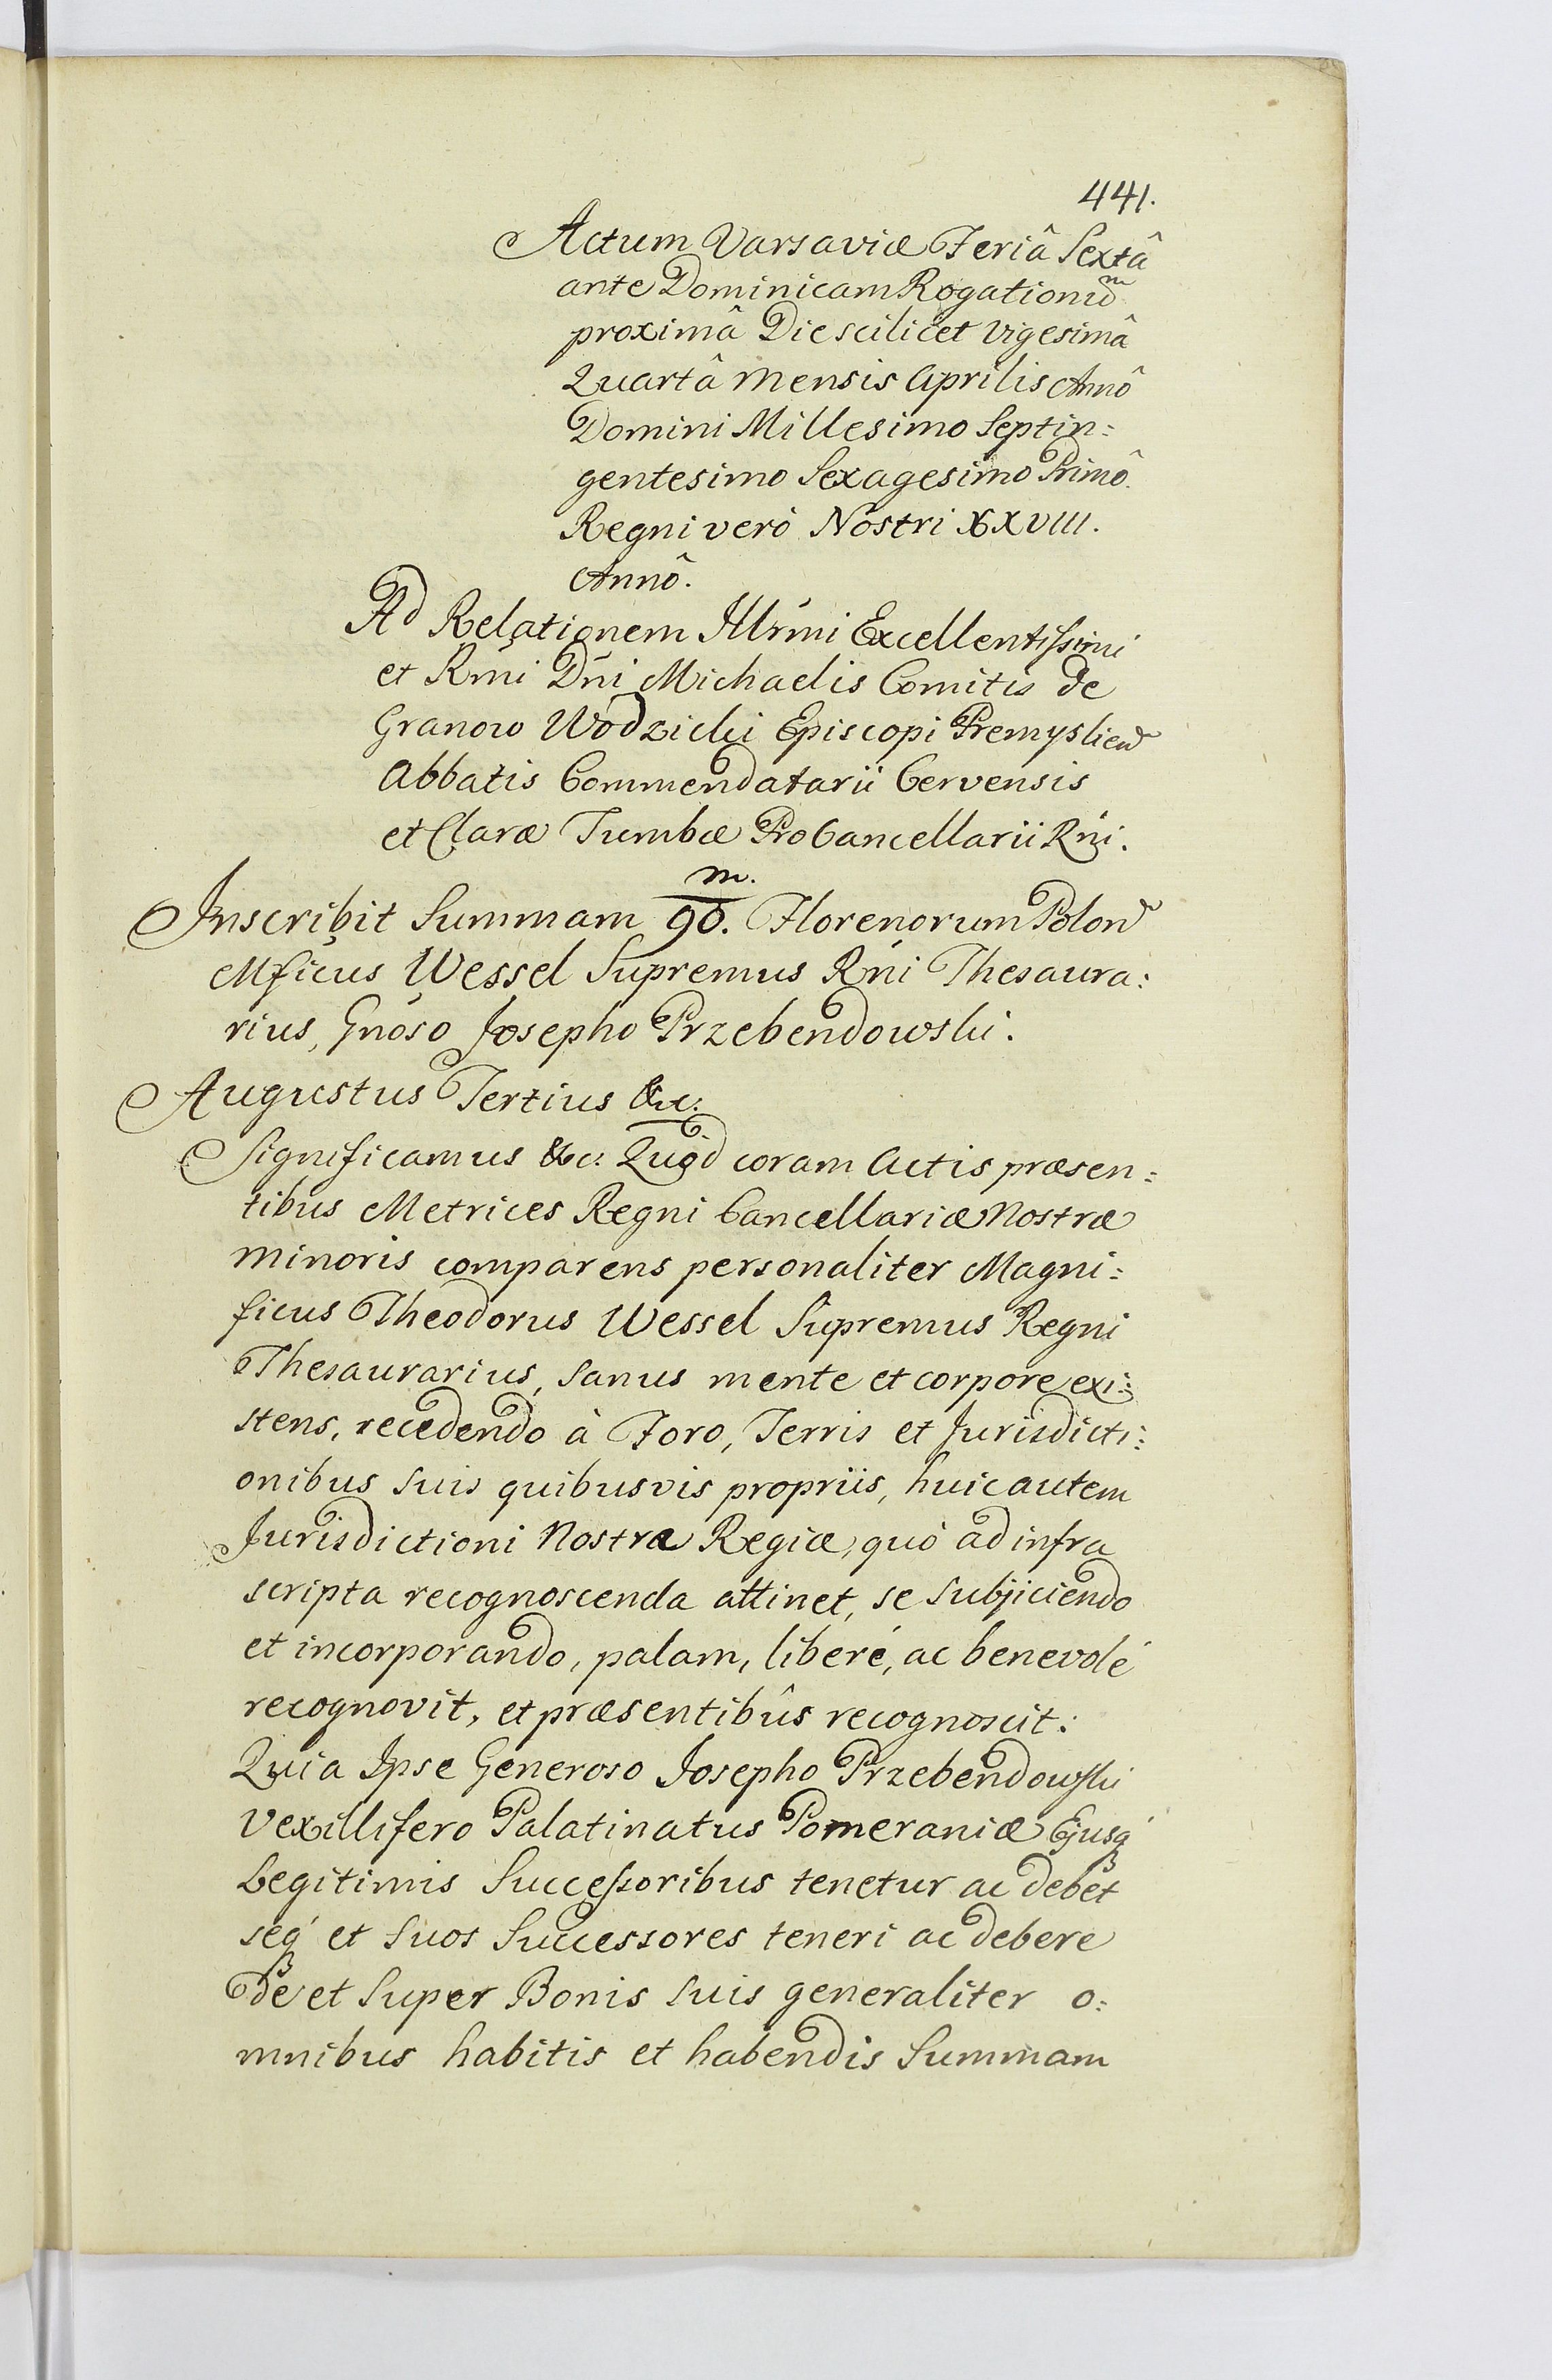 441.
Actum Varsaviæ Feriâ Sextâ
ante Dominicam Rogationũ
proximâ Die scilicet Vigesimâ
Quartâ mensis Aprilis Annô
Domini Millesimo Septin=
gentesimo Sexagesimo Primô.
Regni verò Nostri XXVIII.
Annô.
Ad Relationem Illrmi Excellentissimi
et Rmi Dni Michaelis Comitis de
Granow Wodzicki Episcopi Premyslien
Abbatis Commendatarii Cervensis
et Claræ Tumbæ ProCancellarii Rni.
m.
Inscribit Summam 90. Florenorum Polon
Mficus Wessel Supremus Rni Thesaura:
rius, Gnoso Josepho Przebendowski.
Augustus Tertius &c.
Significamus &c. Quod coram Actis præsen=
tibus Metrices Regni Cancellariæ Nostræ
minoris comparens personaliter Magni=
ficus Theodorus Wessel Supremus Regni
Thesaurarius, sanus mente et corpore exi=
stens, recedendo à Foro, Terris et Jurisdicti=
onibus suis quibusvis propriis, huic autem
Jurisdictioni Nostræ Regiæ, quò ad infra
scripta recognoscenda attinet, se subjiciendo
et incorporando, palam, liberé, ac benevolé
recognovit, et præsentibûs recognoscit:
Quia Ipse Generoso Josepho Przebendowski
Vexillifero Palatinatus Pomeraniæ Ejusq́
Legitimis Successoribus tenetur ac debet
seq́ et suos Successores teneri ac debere
de et super Bonis suis generaliter o=
mnibus habitis et habendis Summam